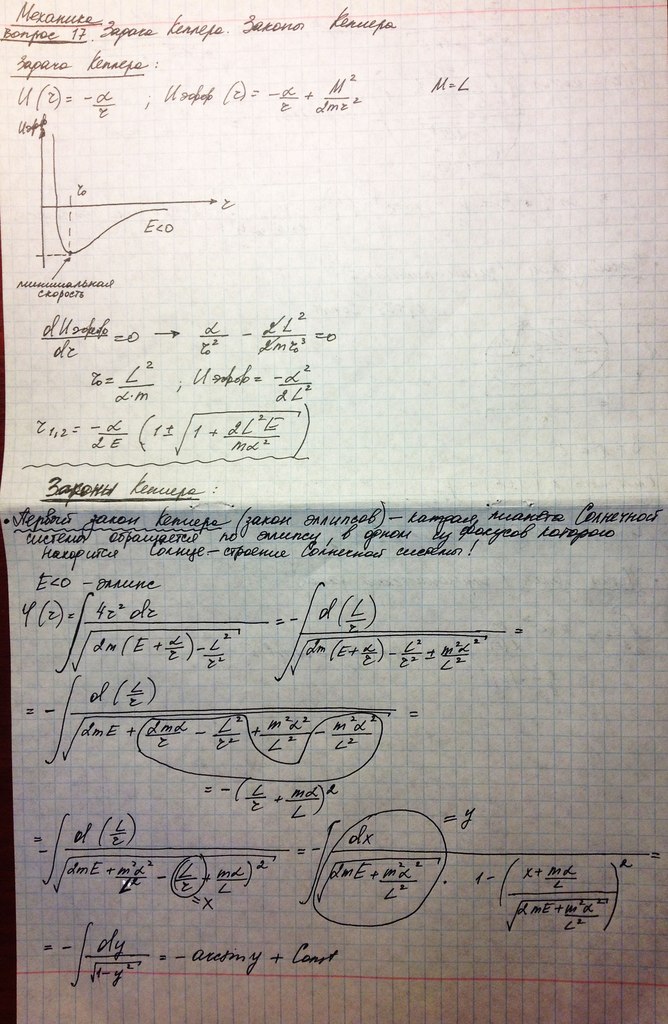 Механика
Вопрос 17. Задача Кеплера. Законы Кеплера
Задача Кеплера:
U(r) = -α/r ; Uэфф(r) = -α/r + M²/2mr² M = L
Uэфф
r₀
r
E<0
минимальная
скорость
dUэфф/dr = 0 → α/r₀² - 2L²/2mr₀³ = 0
r₀ = L²/α·m ; Uэфф = -α²/2L²
r₁,₂ = -α/2E (1 ± √(1 + 2L²E/mα²))
Законы Кеплера:
• Первый закон Кеплера (закон эллипсов) – каждая планета Солнечной
системы обращается по эллипсу, в одном из фокусов которого
находится Солнце – строение Солнечной системы!
E<0 – эллипс
φ(r) = ∫ 4r² dr / √(2m(E + α/r) - L²/r²) = -∫ d(L/r) / √(2m(E + α/r) - L²/r² ± m²α²/L²) =
= -∫ d(L/r) / √(2mE + 2mα/r - L²/r² + m²α²/L² - m²α²/L²) =
= -(L/r + mα/L)²
= -∫ d(L/r) / √(2mE + m²α²/L² - (L/r + mα/L)²) = -∫ dx / √(2mE + m²α²/L²) · 1 - ((x + mα/L) / √(2mE + m²α²/L²))² =
= x
= y
= -∫ dy / √(1-y²) = -arcsin y + Const